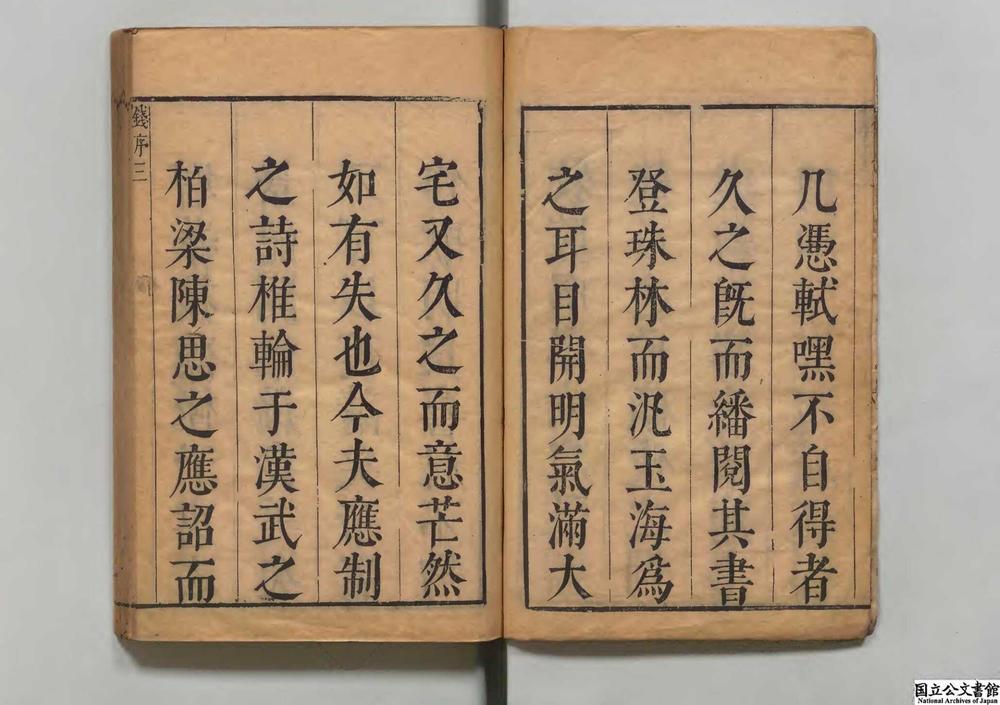 几憑軾嘿不自得者
久之旣而繙閱其書
登珠林而汎玉海爲
之耳目開明氣滿大
宅又久之而意芒然
如有失也今夫應制
之詩椎輪于漢武之
柏梁陳思之應詔而
錢序三
国立公文書館
National Archives of Japan